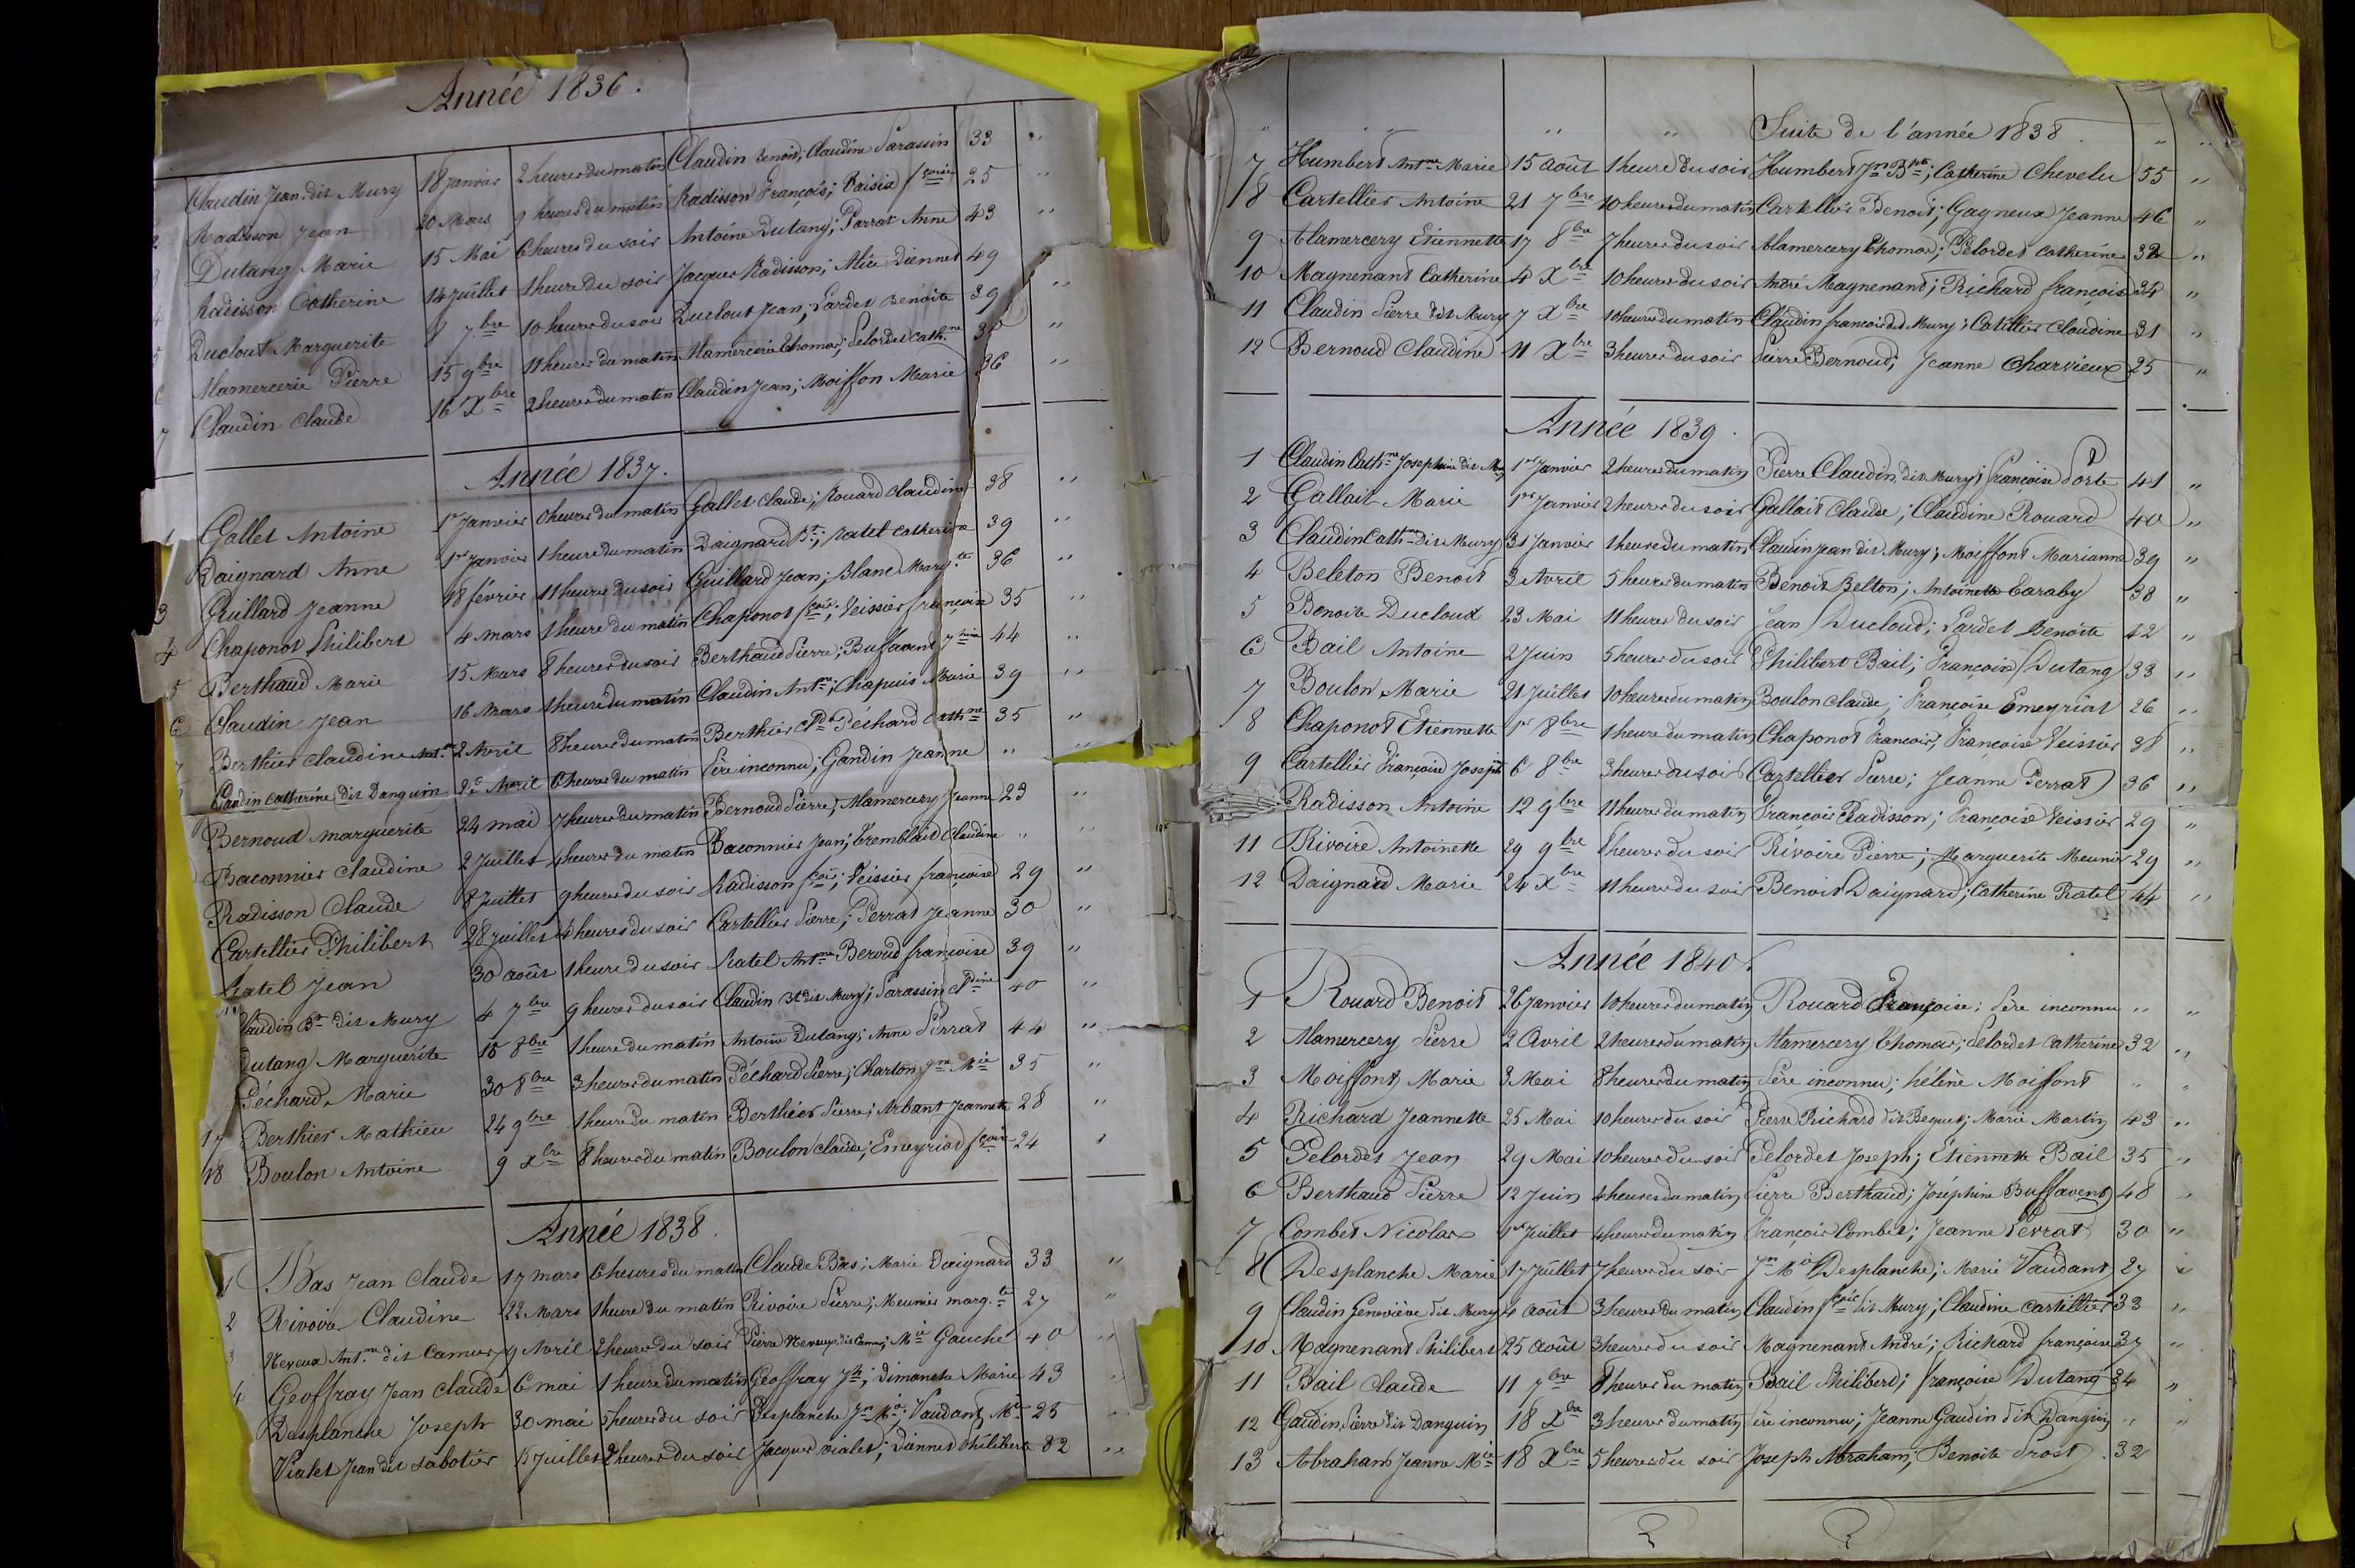 Année 1836.
Claudin Jean dit Mury 18 Janvier 2 heures du matin Claudin Benoit; Claudine Sarassin 33 "
2 Radisson Jean 20 Mars 9 heures du matin Radisson François; Fçoise 25 "
3 Dutang Marie 15 Mai 6 heures du soir Antoine Dutang; Parrat Anne 43 "
4 Radisson Catherine 14 Juillet 1 heure du soir Jacques Radisson; Diennet 49 "
5 Ducloud Marguerite 8 7bre 10 heures du soir Ducloud Jean; Pardet Benoite 39 "
6 Mamercerie Pierre 15 9bre 11 heures du matin Mamercerie Thomas; Pelordet Cathne 30 "
7 Claudin Claude 16 Xbre 2 heures du matin Claudin Jean; Moiffon Marie 36 "
Année 1837.
1 Gallet Antoine 1er Janvier 0 heures du matin Gallet Claude; Rouard Claudine 38 "
Daignard Anne 1er Janvier 1 heure du matin Daignard Bt; Ratel Catherine 39 "
3 Guillard Jeanne 18 février 11 heures du soir Guillard Jean; Blanc Margte 36 "
4 Chaponot Philibert 4 mars 1 heure du matin Chaponot fçois; Veissier françoise 35 "
5 Berthaud Marie 15 Mars 8 heures du soir Berthaud Pierre; Buffavent Jphine 44 "
6 Claudin Jean 16 Mars 1 heure du matin Claudin Antne; Chapuis Marie 39 "
7 Berthier Claudine Antne 2 Avril 8 heures du matin Berthier Cde Péchard Cathne 35 "
Gandin Catherine dit Danguin 2 Avril 6 heures du matin Père inconnu; Gandin Jeanne " "
Bernoud Marguerite 24 mai 7 heures du matin Bernoud Pierre; Mamercery Jeanne 23 "
Baconnier Claudine 2 Juillet 4 heures du matin Baconnier Jean; Tremblaid Claudine " "
Radisson Claude 8 Juillet 9 heures du soir Radisson fçois; Veissier françoise 29 "
Cartellier Philibert 28 Juillet 4 heures du soir Cartellier Pierre; Perrat Jeanne 30 "
Ratel Jean 30 août 1 heure du soir Ratel Antne Beroud françoise 39 "
Claudin Bt dit Mury 4 7bre 9 heures du soir Claudin Bt dit Mury; Sarassin Cdine 40 "
Dutang Marguerite 16 8bre 1 heure du matin Antoine Dutang; Anne Perrat 44 "
Péchard Marie 30 8bre 3 heures du matin Péchard Pierre; Charton Jne Mie 35 "
17 Berthier Mathieu 24 9bre 1 heure du matin Berthier Pierre; Arbant Jeannette 28 "
18 Boulon Antoine 9 Xbre 8 heures du matin Boulon Claude; Emeyriad fçoise 24 "
Année 1838.
1 Bas Jean Claude 17 mars 6 heures du matin Claude Bas; Marie Daignard 33 "
2 Rivoire Claudine 22 Mars 1 heure du matin Rivoire Pierre; Meunier margte 27 "
3 Neveux Antne dit Camus 9 Avril 2 heures du soir Pierre Neveux dit Camus; Mie Gauché 40 "
4 Geoffray Jean Claude 6 mai 1 heure du matin Geoffray Jh; Dimanche Marie 43 "
Desplanche Joseph 30 mai 5 heures du soir Desplanche Jn Mie; Vaudant Mie 25 "
Vialet Jean dit sabotier 15 Juillet 2 heures du soir Jacques Vialet; Diannet Philiberte 32 "
" " " " Suite de l'année 1838 " "
7 Humbert Antne Marie 15 août 1 heure du soir Humbert Jn Bte; Catherine Chevelu 55 "
8 Cartellier Antoine 21 7bre 10 heures du matin Cartellier Benoit; Gagneux Jeanne 46 "
9 Mamercery Etiennette 17 8bre 7 heures du soir Mamercery Thomas; Pelordet Catherine 32 "
10 Magnenant Catherine 4 Xbre 10 heures du soir André Magnenant; Richard françoise 34 "
11 Claudin Pierre dit Mury 7 Xbre 10 heures du matin Claudin françois dit Mury; Catellier Claudine 31 "
12 Bernoud Claudine 11 Xbre 3 heures du soir Pierre Bernoud; Jeanne Charvieux 25 "
Année 1839.
1 Claudin Cathne Josephine dit Mury 1er Janvier 2 heures du matin Pierre Claudin dit Mury; Françoise Porte 41 "
2 Gallait Marie 1er Janvier 2 heures du soir Gallait Claude; Claudine Rouard 40 "
3 Claudin Cathne dit Mury 31 Janvier 1 heure du matin Claudin Jean dit Mury; Moiffont Marianne 39 "
4 Beleton Benoit 3 Avril 5 heures du matin Benoit Belton; Antoinette Caraby 38 "
5 Benoite Ducloud 23 Mai 11 heures du soir Jean Ducloud; Pardet Benoite 42 "
6 Bail Antoine 2 Juin 5 heures du soir Philibert Bail; Françoise Dutang 33 "
7 Boulon Marie 21 Juillet 10 heures du matin Boulon Claude; Françoise Emeyriat 26 "
8 Chaponot Etiennette 1er 8bre 1 heure du matin Chaponot François; Françoise Veissier 38 "
9 Cartellier Françoise Joseph 6 8bre 3 heures du soir Cartellier Pierre; Jeanne Perrat 36 "
Radisson Antoine 12 9bre 11 heures du matin François Radisson; Françoise Veissier 29 "
11 Rivoire Antoinette 29 9bre 8 heures du soir Rivoire Pierre; Marguerite Meunier 29 "
12 Daignard Marie 24 Xbre 11 heures du soir Benoit Daignard; Catherine Ratel 44 "
Année 1840.
1 Rouard Benoit 26 Janvier 10 heures du matin Rouard Françoise; Père inconnu " "
2 Mamercery Pierre 2 Avril 2 heures du matin Mamercery Thomas; Pelordet Catherine 32 "
3 Moiffont Marie 3 Mai 8 heures du matin Père inconnu; hélène Moiffont " "
4 Richard Jeannette 25 Mai 10 heures du soir Pierre Richard dit Beguet; Marie Martin 43 "
5 Pelordet Jean 29 Mai 10 heures du soir Pelordet Joseph; Étiennette Bail 35 "
6 Berthaud Pierre 12 Juin 4 heures du matin Pierre Berthaud; Joséphine Buffavent 48 "
7 Combet Nicolas 1er Juillet 4 heures du matin François Combet; Jeanne Perrat 30 "
8 Desplanche Marie 17 Juillet 7 heures du soir Jn Mie Desplanche; Marie Vaudant 27 "
9 Claudin Geneviève dit Mury 4 août 3 heures du matin Claudin fçois dit Mury; Claudine Cartellier 33 "
10 Magnenant Philibert 25 août 3 heures du soir Magnenant André; Richard françoise 37 "
11 Bail Claude 11 7bre 8 heures du matin Bail Philibert; françoise Dutang 34 "
12 Gaudin Pierre dit Danguin 18 Xbre 3 heures du matin Père inconnu; Jeanne Gaudin dit Dangin " "
13 Abraham Jeanne Mie 18 Xbre 5 heures du soir Joseph Abraham; Benoite Prost 32